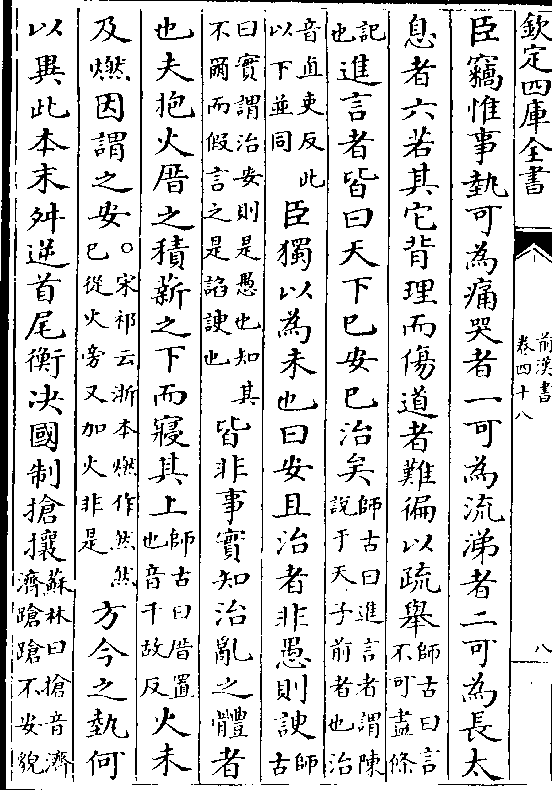 欽定四庫全書
前漢書
卷四十八
八
臣竊惟事埶可為痛哭者一可為流涕者二可為長太
息者六若其它背理而傷道者難徧以疏舉師古曰言不可盡條
記也進言者皆曰天下已安已治矣師古曰進言者謂陳說于天子前者也治
音直吏反此以下並同臣獨以為未也曰安且治者非愚則諛師古
曰實謂治安則是愚也知其不爾而假言之是諂諛也皆非事實知治亂之體者
也夫抱火厝之積薪之下而寢其上師古曰厝置也音千故反火未
及燃因謂之安○宋祁云浙本燃作然然已從火旁又加火非是方今之埶何
以異此本末舛逆首尾衡决國制搶攘蘇林曰搶音濟濟蹌蹌不安貌